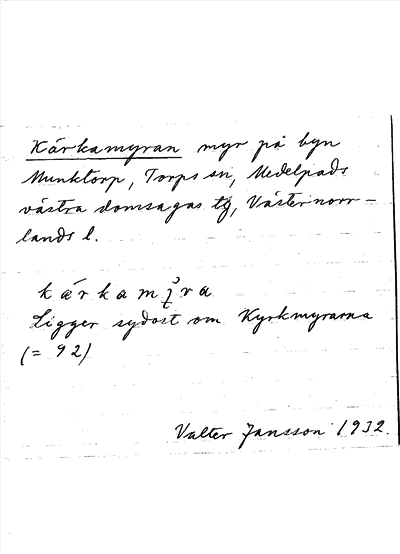 Kärkamyran myr på byn
Munktorp, Torps sn, Medelpads
västra domsagas tg, Västernorr-
lands l.
kärkamyra
Ligger sydost om Kyrkmyrarna
(= 92)
Valter Jansson 1932.